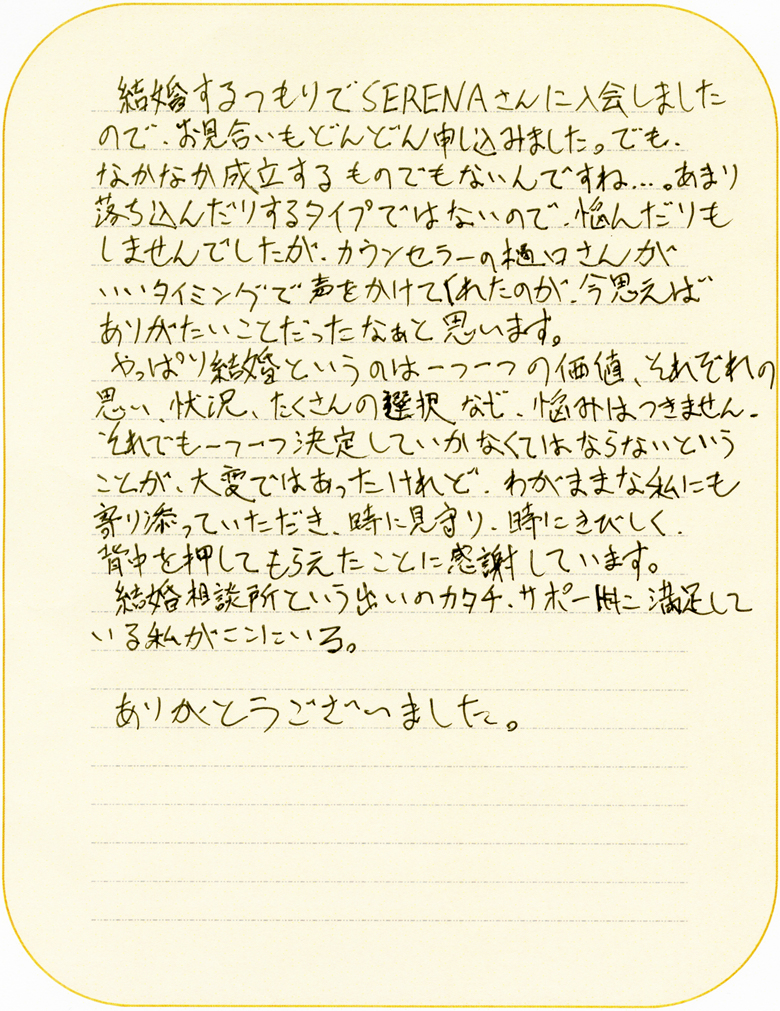 結婚するつもりでSERENAさんに入会しました
ので、お見合いもどんどん申し込みました。でも、
なかなか成立するものでもないんですね…。あまり
落ち込んだりするタイプではないので、悩んだりも
しませんでしたが、カウンセラーの樋口さんが
いいタイミングで声をかけてくれたのが、今思えば
ありがたいことだったなぁと思います。
やっぱり結婚というのは一つ一つの価値、それぞれの
思い、状況、たくさんの選択など、悩みはつきません。
それでも一つ一つ決定していかなくてはならないという
ことが、大変ではあったけれど、わがままな私にも
寄り添っていただき、時に見守り、時にきびしく、
背中を押してもらえたことに感謝しています。
結婚相談所という出いのカタチ、サポートに満足して
いる私がここにいる。
ありがとうございました。